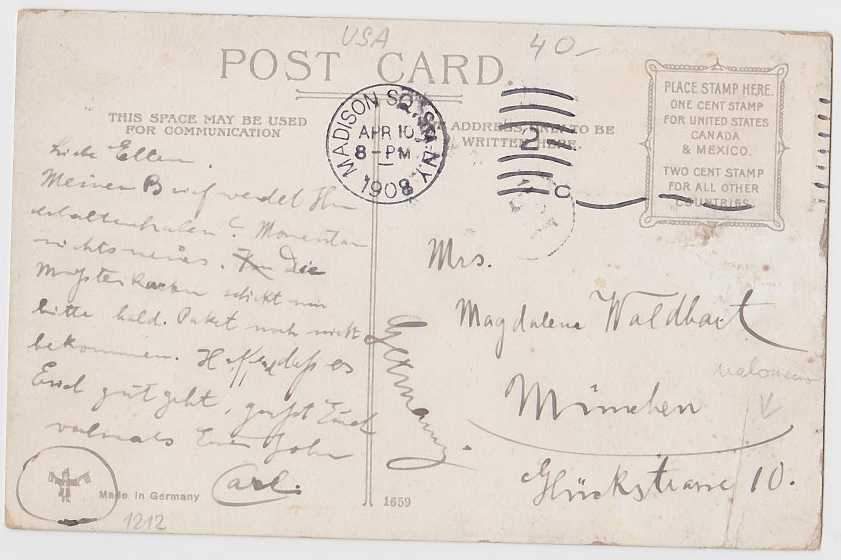 USA
40-
POST CARD.
THIS SPACE MAY BE USED
FOR COMMUNICATION
ADDRESS ONLY TO BE
WRITTEN HERE.
MADISON SQ. STA. N.Y.
APR 10
8-PM
1908
2
C
PLACE STAMP HERE.
ONE CENT STAMP
FOR UNITED STATES
CANADA
& MEXICO.
TWO CENT STAMP
FOR ALL OTHER
COUNTRIES
Liebe Eltern.
Meinen Brief werdet Ihr
erhalten haben? Momentan
nichts neues. Die
schickt mir
bitte bald. Paket noch nicht
bekommen. Hoffe daß es
Euch gut geht, grüßt Euch
vielmals Euer Sohn
Carl.
Mrs.
Magdalena Waldhart
München
Glückstrasse 10.
Germany
Made in Germany
1659
1212